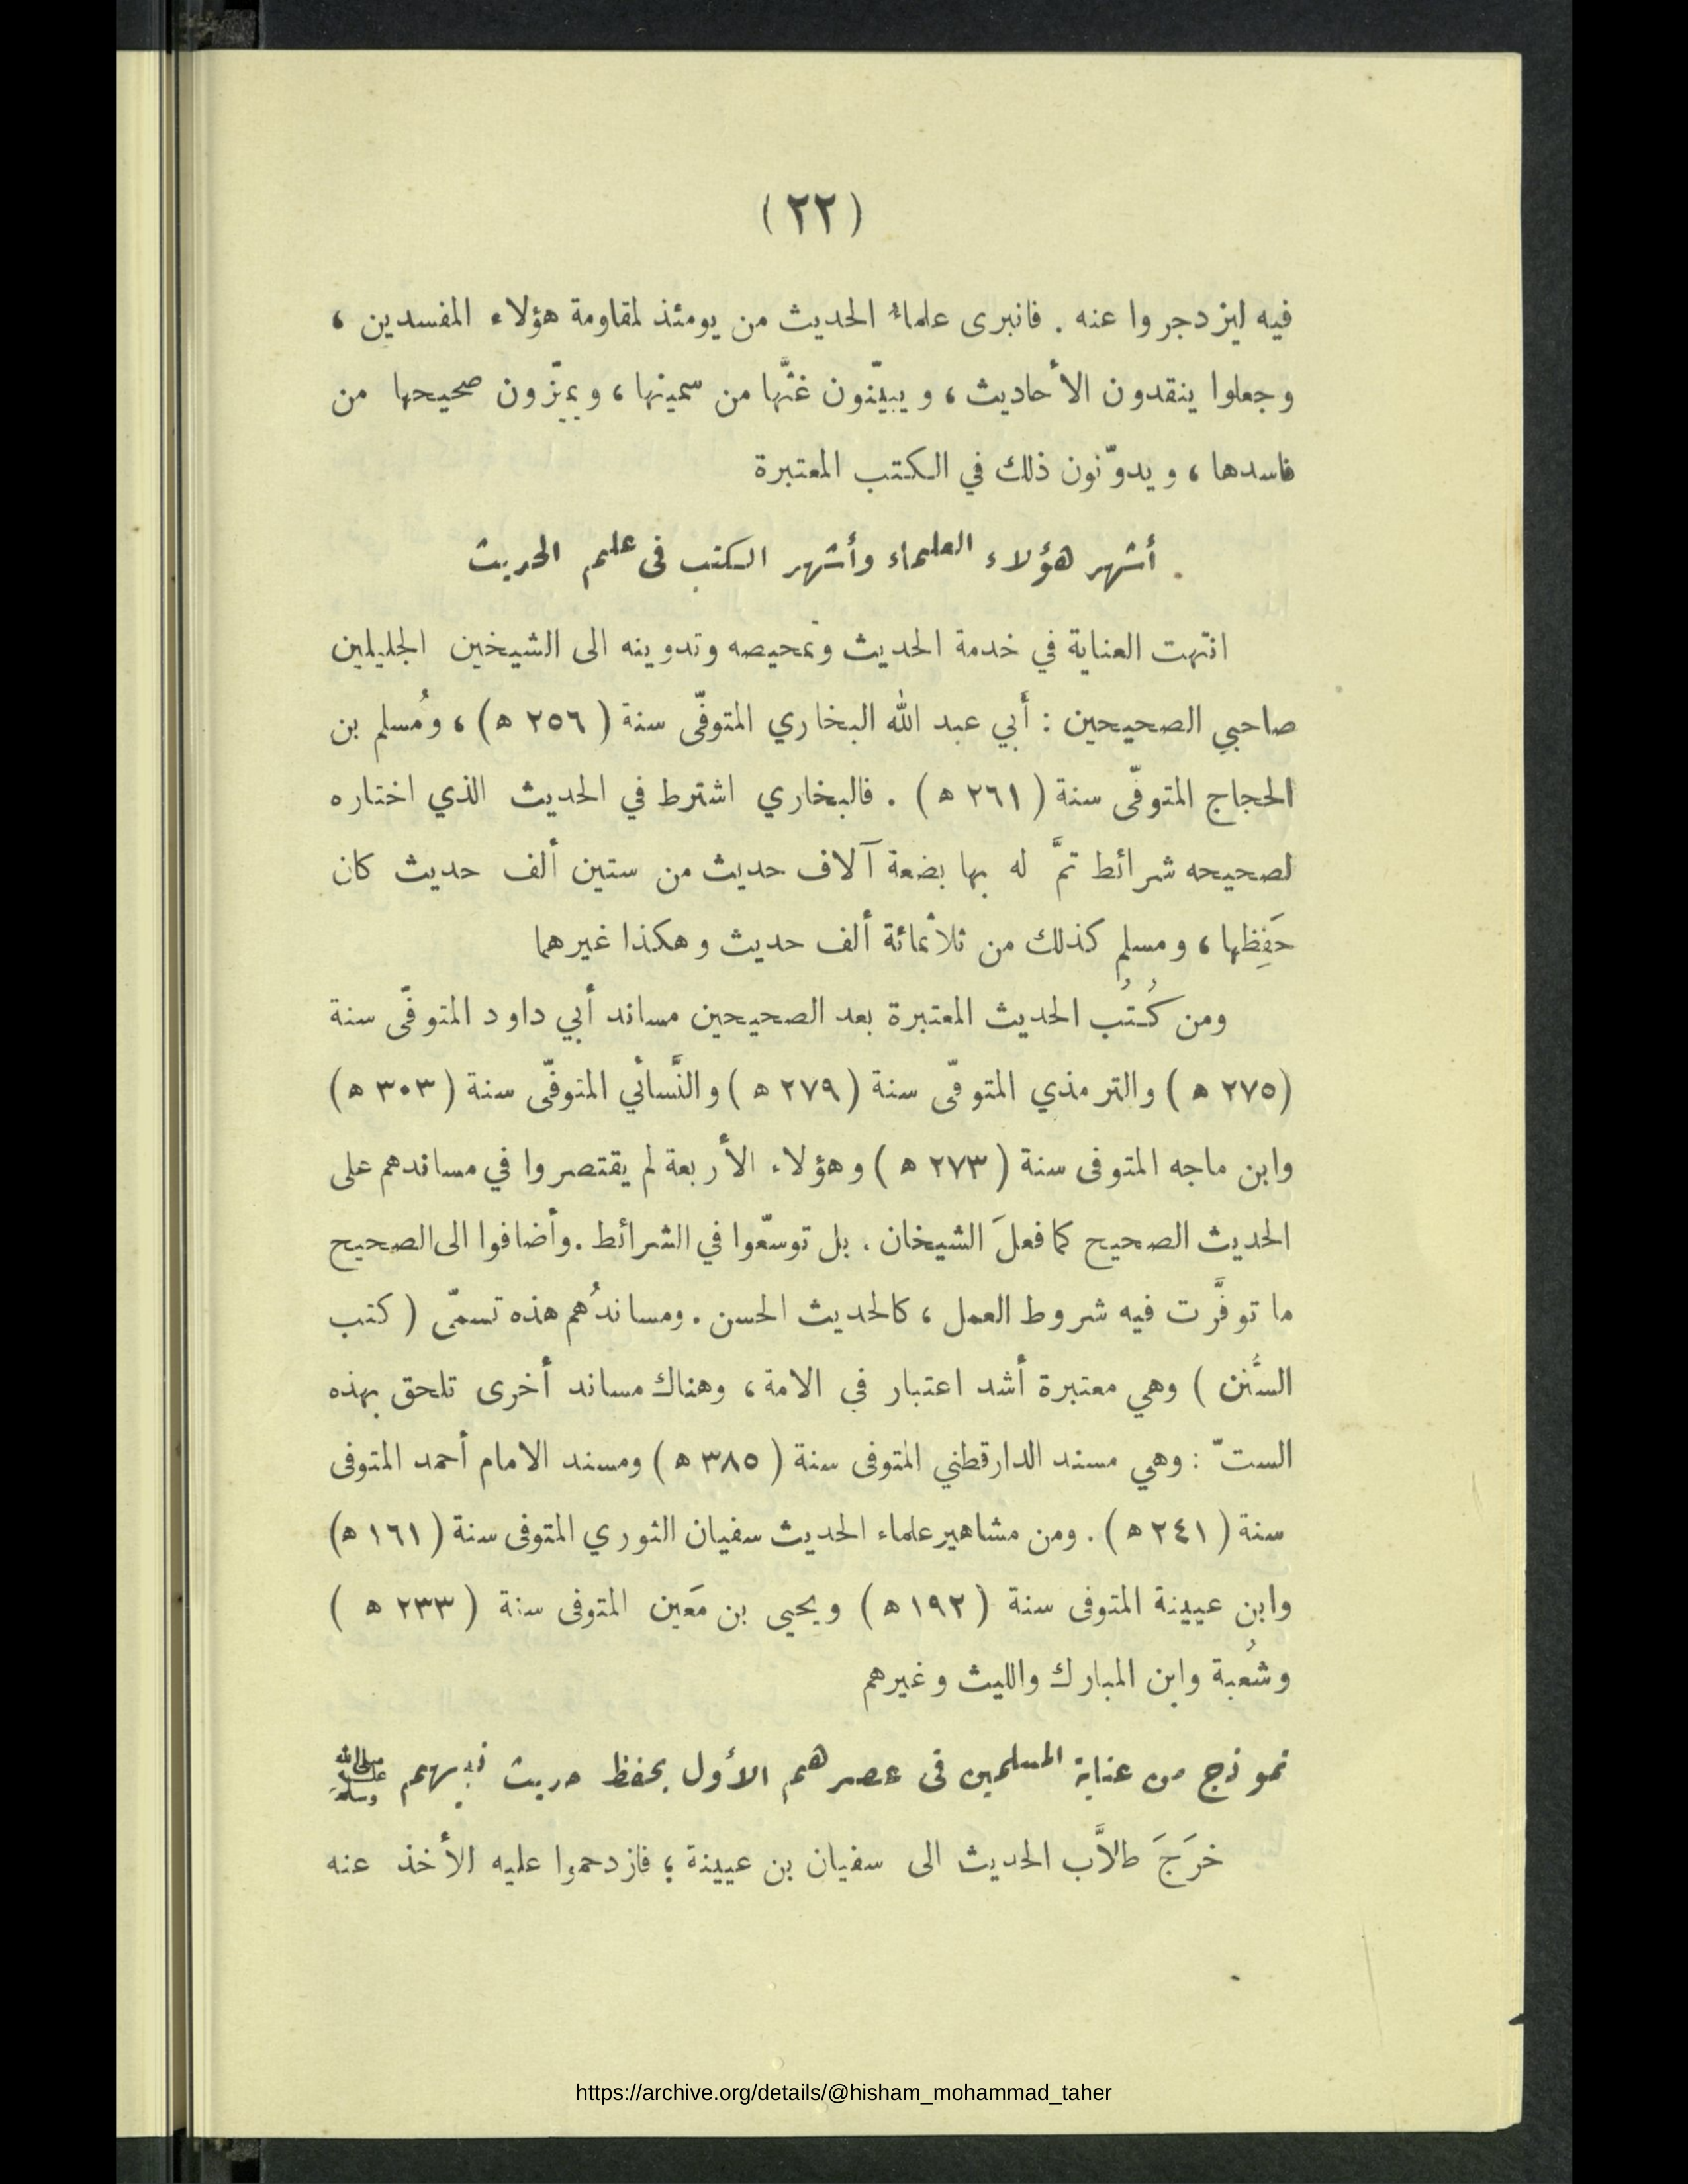 (٢٢)
فيه ليزدجروا عنه . فانبرى علماءُ الحديث من يومئذ لمقاومة هؤلاء المفسدين ،
وجعلوا ينقدون الأحاديث ، و يبيّنون غثَّها من سمينها ، و يميّزون صحيحها من
فاسدها ، و يدوّنون ذلك في الكتب المعتبرة
أشهر هؤلاء العلماء وأشهر الكتب فى علم الحديث
انتهت العناية في خدمة الحديث وتمحيصه وتدوينه الى الشيخين الجليلين
صاحبي الصحيحين : أبي عبد الله البخاري المتوفّى سنة ( ٢٥٦ ه ) ، ومُسلم بن
الحجاج المتوفّى سنة ( ٢٦١ ه ) . فالبخاري اشترط في الحديث الذي اختاره
لصحيحه شرائط تمَّ له بها بضعة آلاف حديث من ستين ألف حديث كان
حَفِظها ، ومسلم كذلك من ثلاثمائة ألف حديث وهكذا غيرهما
ومن كُتُب الحديث المعتبرة بعد الصحيحين مساند أبي داود المتوفّى سنة
( ٢٧٥ ه ) والترمذي المتوفّى سنة ( ٢٧٩ ه ) والنَّسائي المتوفّى سنة ( ٣٠٣ ه )
وابن ماجه المتوفى سنة ( ٢٧٣ ه ) وهؤلاء الأربعة لم يقتصروا في مساندهم على
الحديث الصحيح كما فعلَ الشيخان . بل توسّعوا في الشرائط . وأضافوا الى الصحيح
ما توفَّرت فيه شروط العمل ، كالحديث الحسن . ومساندُهم هذه تسمّى ( كتب
السُّنن ) وهي معتبرة أشد اعتبار في الامة ، وهناك مساند أخرى تلحق بهذه
الستّ : وهي مسند الدارقطني المتوفى سنة ( ٣٨٥ ه ) ومسند الامام أحمد المتوفى
سنة ( ٢٤١ ه ) . ومن مشاهير علماء الحديث سفيان الثوري المتوفى سنة ( ١٦١ ه )
وابن عيينة المتوفى سنة ( ١٩٢ ه ) ويحيى بن مَعَين المتوفى سنة ( ٢٣٣ ه )
وشُعبة وابن المبارك والليث وغيرهم
نموذج من عناية المسلمين فى عصرهم الأول بحفظ حديث نبيهم ﷺ
خرَجَ طلاَّب الحديث الى سفيان بن عيينة ؛ فازدحموا عليه الأخذ عنه
https://archive.org/details/@hisham_mohammad_taher